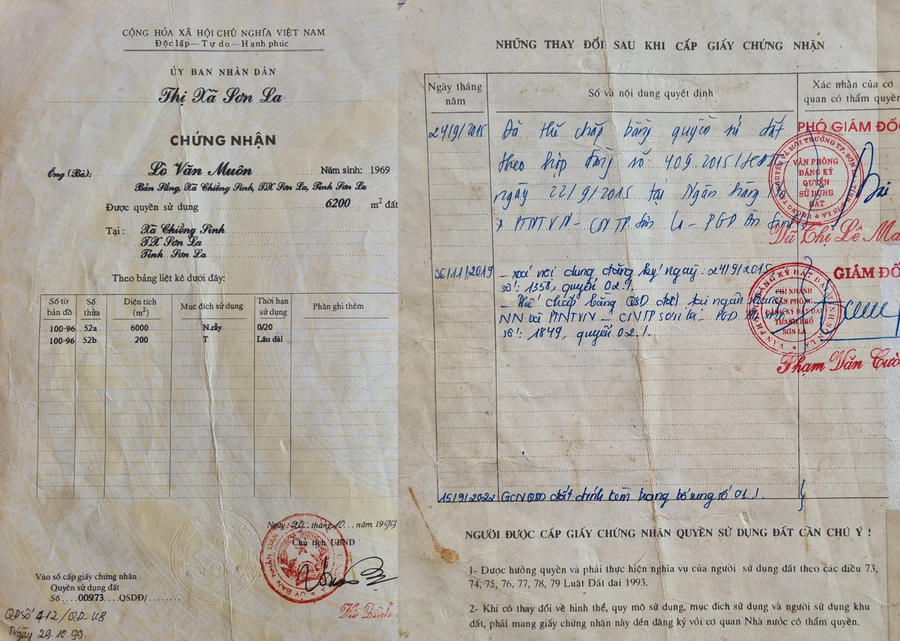 CỘNG HÒA XÃ HỘI CHỦ NGHĨA VIỆT NAM
Độc lập — Tự do — Hạnh phúc
ỦY BAN NHÂN DÂN
Thị Xã Sơn La
CHỨNG NHẬN
Ông (Bà): Lò Văn Muôn Năm sinh: 1969
Bản Sẳng, Xã Chiềng Sinh, T.X Sơn La, Tỉnh Sơn La
Được quyền sử dụng 6200 m² đất
Tại: Xã Chiềng Sinh
T.X Sơn La
Tỉnh Sơn La
Theo bảng liệt kê dưới đây:
Số tờ bản đồ Số thửa Diện tích (m²) Mục đích sử dụng Thời hạn sử dụng Phần ghi thêm
100-96 52a 6000 N.rẫy 0/20
100-96 52b 200 T Lâu dài
Ngày tháng 10 năm 1999
Chủ tịch UBND
Vào sổ cấp giấy chứng nhận
Quyền sử dụng đất
Số 00973 QSDĐ/
QĐ Số 412/QĐ-UB
Ngày 29.10.99
NHỮNG THAY ĐỔI SAU KHI CẤP GIẤY CHỨNG NHẬN
Ngày tháng năm Số và nội dung quyết định Xác nhận của cơ quan có thẩm quyền
24/9/2015 Đã thế chấp bằng quyền sử đất
theo hợp đồng số 409.2015/
ngày 22/9/2015 tại Ngân hàng
PTNTVN - CN TP. Sơn La - PGD
PHÓ GIÁM ĐỐ
VĂN PHÒNG
ĐĂNG KÝ
QUYỀN
SỬ DỤNG
ĐẤT
Vũ Thị Lê Ma
06/11/2019 - Xoá nội dung đăng ký ngày: 24/9/2015
số: 1358, quyển 02.
- Thế chấp bằng QSD đất tại ngân hàng
NN và PTNTVN - CNTP Sơn La - PGD
số: 1849, quyển 02.
GIÁM ĐỐ
CHI NHÁNH
VĂN PHÒNG
ĐĂNG KÝ ĐẤT ĐAI
THÀNH PHỐ
SƠN LA
Phạm Văn Cườ
15/9/2022 GCNQSD đất đính kèm trang bổ sung số 01.
NGƯỜI ĐƯỢC CẤP GIẤY CHỨNG NHẬN QUYỀN SỬ DỤNG ĐẤT CẦN CHÚ Ý !
1- Được hưởng quyền và phải thực hiện nghĩa vụ của người sử dụng đất theo các điều 73,
74, 75, 76, 77, 78, 79 Luật Đất đai 1993.
2- Khi có thay đổi về hình thể, quy mô sử dụng, mục đích sử dụng và người sử dụng khu
đất, phải mang giấy chứng nhận này đến đăng ký với cơ quan Nhà nước có thẩm quyền.